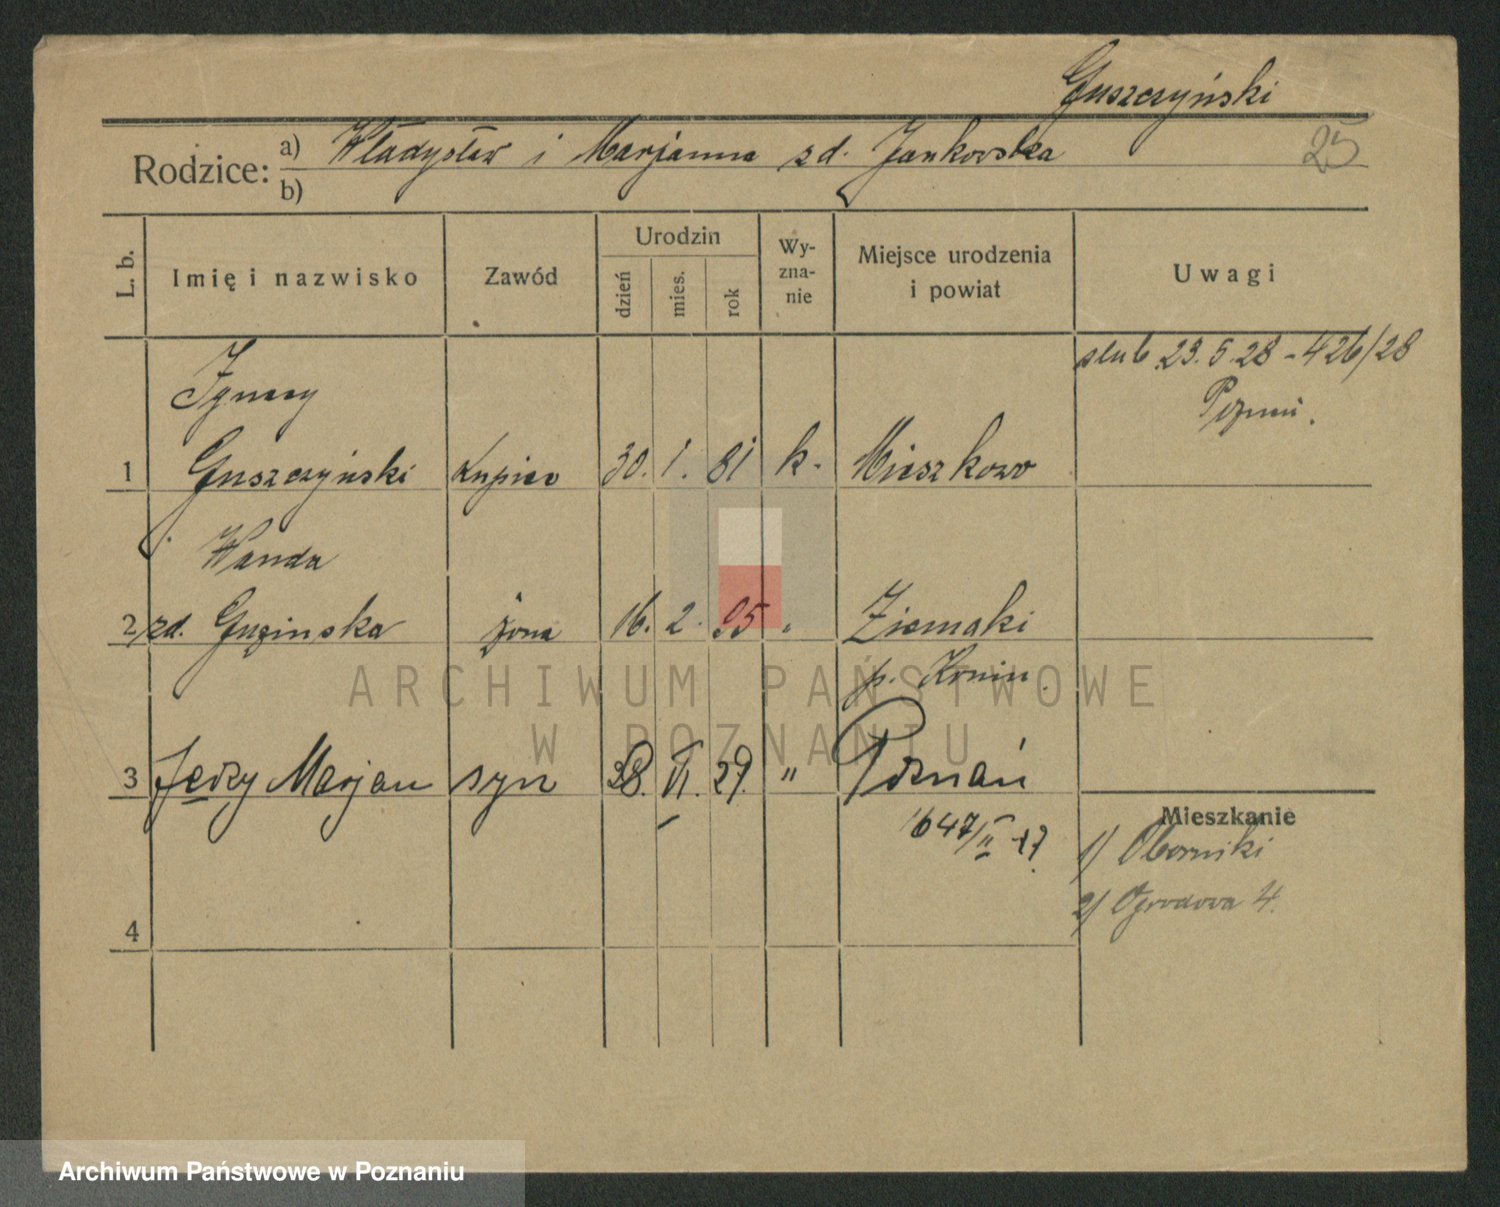 Guszczyński
25
Rodzice: a) Władysław i Marjanna zd. Jankowska
b)
L. b.
Imię i nazwisko
Zawód
Urodzin
dzień
mies.
rok
Wy-
zna-
nie
Miejsce urodzenia
i powiat
Uwagi
ślub 23.5.28 - 426/28
Poznań.
Ignacy
1 Guszczyński kupiec 30. 1. 81 k. Mieszkowo
Wanda
2 zd. Guzinska żona 16. 2. 95 „ Ziemaki
p. Konin.
3 Jerzy Marjan syn 28. VI. 29. „ Poznań
1647/II
Mieszkanie
1/ Oborniki
2/ Ogrodowa 4.
4
ARCHIWUM PAŃSTWOWE
W POZNANIU
Archiwum Państwowe w Poznaniu